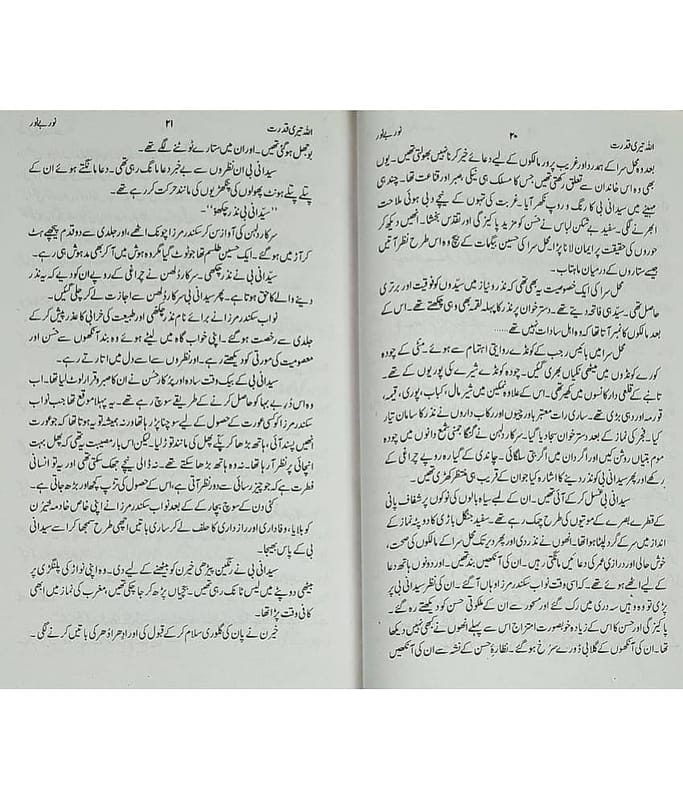 اللہ تیری قدرت ۲۰ نور بے نور
بعد وہ محل سرا کے ہمدرد اور غریب پرور مالکوں کے لیے دعائے خیر کرنا نہیں بھولتی تھیں۔ یوں
بھی وہ اس خاندان سے تعلق رکھتی تھیں جس کا مسلک ہی نیکی، صبر اور قناعت تھا۔ چند ہی
مہینے میں سیدانی بی کا رنگ و روپ نکھر آیا۔ غربت کی تہوں کے نیچے دبی ہوئی ملاحت
ابھرنے لگی۔ سفید بے شکن لباس نے حسن کو مزید پاکیزگی اور تقدس بخشا۔ انھیں دیکھ کر
حوروں کی حقیقت پر ایمان لانا پڑا۔ محل سرا کی حسین بیگمات کے بیچ وہ اس طرح نظر آتیں
جیسے ستاروں کے درمیان ماہتاب۔
محل سرا کی ایک خصوصیت یہ بھی تھی کہ نذر و نیاز میں سیدوں کو فوقیت اور برتری
حاصل تھی۔ سید ہی فاتحہ دیتے تھے۔ دسترخوان پر نذر کا پہلا لقمہ بھی وہی چکھتے تھے۔ اس کے
بعد مالکوں کا نمبر آتا تھا کہ وہ اہل سادات نہیں تھے......
محل سرا میں بائیس رجب کے کونڈے روایتی اہتمام سے ہوئے۔ مٹی کے چودہ
کورے کونڈوں میں میٹھی ٹکیاں بھری گئیں۔ چودہ کونڈے شیرے کی پوریوں کے تھے۔
تانبے کے قلعی دار کاسوں میں کھیر تھی۔ اس کے علاوہ نمکین میں شیر مال، کباب، پوری، قیمہ،
قورمہ اور دہی بڑی تھے۔ ساری رات معتبر باورچیوں اور رکاب داروں نے نذر کا سامان تیار
کیا۔ فجر کی نماز کے بعد دسترخوان سجا دیا گیا۔ سرکار دلہن نے گنگا جمنی شمع دانوں میں چودہ
موم بتیاں روشن کیں اور اگردان میں اگر بتی سلگائی۔ چاندی کے گیارہ روپے چراغی کے
رکھے اور پھر سیدانی بی کو نذر دینے کا اشارہ کیا جو ان کے قریب ہی منتظر کھڑی تھیں۔
سیدانی بی غسل کر کے آئی تھیں۔ ان کے لمبے سیاہ بالوں کی نوکوں پر شفاف پانی
کے قطرے بصرے کے موتیوں کی طرح چمک رہے تھے۔ سفید جنگل باڑی دوپٹہ نماز کے
انداز میں سر کے گرد لپٹا ہوا تھا۔ انھوں نے نذر دی اور پھر دیر تک محل سرا کے مالکوں کی صحت،
خوش حالی اور درازی عمر کی دعائیں مانگتی رہیں۔ ان کی آنکھیں بند تھیں۔ اور دونوں ہاتھ دعا
کے لیے اٹھے ہوئے تھے کہ اسی وقت نواب سکندر مرزا وہاں آ گئے۔ ان کی نظر سیدانی بی پر
پڑی تو وہ وہیں سہ دری میں رک گئے اور مسحور سے ان کے ملکوتی حسن کو دیکھتے رہ گئے۔
پاکیزگی اور حسن کا اس کے زیادہ خوبصورت امتزاج اس سے پہلے انھوں نے کبھی نہیں دیکھا
تھا۔ ان کی آنکھوں کے گلابی ڈورے سرخ ہو گئے۔ نظارۂ حسن کے نشہ سے ان کی آنکھیں
اللہ تیری قدرت ۲۱ نور بے نور
بوجھل ہو گئی تھیں۔ اور ان میں ستارے ٹوٹنے لگے تھے۔
سیدانی بی ان نظروں سے بے خبر دعا مانگ رہی تھی۔ دعا مانگتے ہوئے ان کے
پتلے پتلے ہونٹ پھولوں کی پنکھڑیوں کی مانند حرکت کر رہے تھے۔
”سیدانی بی نذر چکھو“۔
سرکار دلہن کی آواز سن کر سکندر مرزا چونک اٹھے، اور جلدی سے دو قدم پیچھے ہٹ
کر آڑ میں ہو گئے۔ ایک حسین طلسم تھا، جو ٹوٹ گیا مگر وہ ہوش میں آ کر بھی مدہوش ہی رہے۔
سیدانی بی نے نذر چکھی۔ سرکار دلھن نے چراغی کے روپے ان کو دیے کہ یہ نذر
دینے والے کا حق ہوتا ہے۔ پھر سیدانی بی سرکار دلھن سے اجازت لے کر چلی گئیں۔
نواب سکندر مرزا نے برائے نام نذر چکھی اور طبیعت کی خرابی کا عذر پیش کر کے
جلدی سے رخصت ہو گئے۔ اپنی خواب گاہ میں لیٹے ہوئے وہ بند آنکھوں سے حسن اور
معصومیت کی مورتی کو دیکھتے رہے۔ اور نظروں سے اسے دل میں اتارتے رہے۔
سیدانی بی کے بیک وقت سادہ اور پرکار حسن نے ان کا صبر و قرار لوٹ لیا تھا۔ اب
وہ اس درِ بے بہا کو حاصل کرنے کے طریقے سوچ رہے تھے۔ یہ پہلا موقع تھا جب نواب
سکندر مرزا کو کسی عورت کے حصول کے لیے سوچنا پڑ رہا تھا ورنہ ہمیشہ تو یہ ہوتا تھا کہ جو عورت
انھیں پسند آئی، ہاتھ بڑھا کر پکے پھل کی مانند توڑ لیا۔ لیکن اس بار مصیبت یہ تھی کہ پھل بہت
اونچائی پر نظر آ رہا تھا۔ نہ وہ ہاتھ بڑھا سکتے تھے۔ نہ ڈالی نیچے جھک سکتی تھی اور یہ تو انسانی
فطرت ہے کہ جو چیز رسائی سے دور نظر آتی ہے، اس کے حصول کی تڑپ کچھ اور بڑھ جاتی ہے۔
کئی دن کے سوچ بچار کے بعد نواب سکندر مرزا نے اپنی خاص خادمہ خیرن
کو بلایا، وفاداری اور رازداری کا حلف لے کر ساری باتیں اچھی طرح سمجھا کر اسے سیدانی
بی کے پاس بھیجا۔
سیدانی بی نے رنگین پیڑھی خیرن کو بیٹھنے کے لیے دی۔ وہ اپنی نواڑ کی پلنگڑی پر
بیٹھی دوپٹے میں لیس ٹانک رہی تھیں۔ بچیاں پڑھ کر جا چکی تھیں، مغرب کی نماز میں ابھی
کافی وقت پڑا تھا۔
خیرن نے پان کی گلوری سلام کر کے قبول کی اور ادھر ادھر کی باتیں کرنے لگی۔